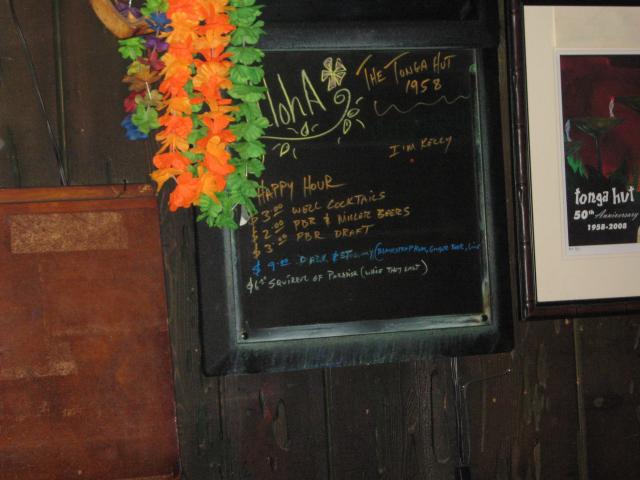 lohA
THE TONGA HUT
1958
I'M KELLY
HAPPY HOUR
$3.00 WELL COCKTAILS
$2.00 PBR & MILLER BEERS
$3.00 PBR DRAFT
DARK & STORMY (BLACKSTRAP RUM, GINGER BEER,
SQUIRREL OF PARADISE (WHILE THEY LAST)
tonga hut
50th Anniversary
1958-2008